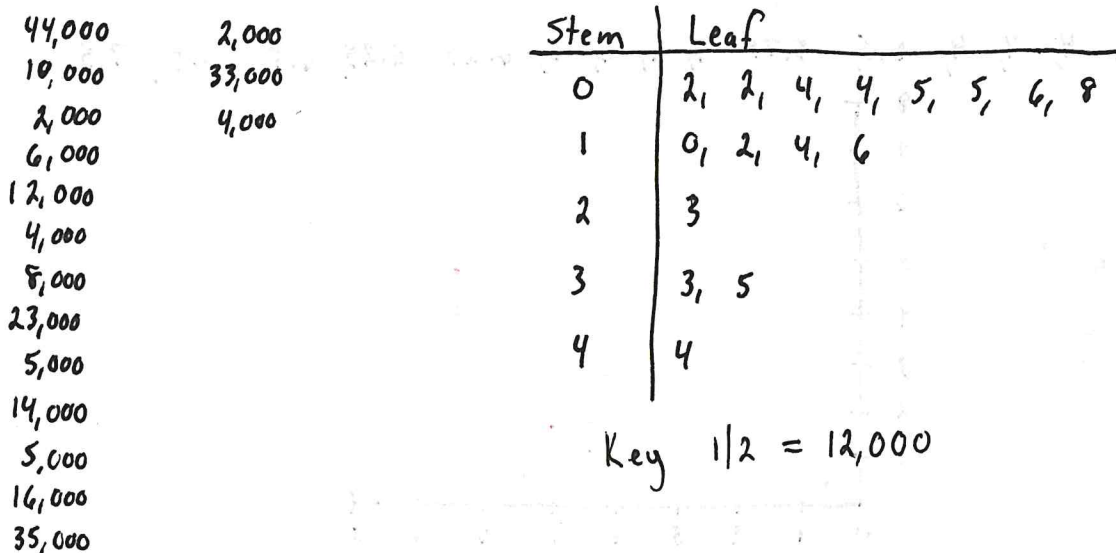 44,000
10,000
2,000
6,000
12,000
4,000
8,000
23,000
5,000
14,000
5,000
16,000
35,000
2,000
33,000
4,000
Stem Leaf
0 2, 2, 4, 4, 5, 5, 6, 8
1 0, 2, 4, 6
2 3
3 3, 5
4 4
Key 1|2 = 12,000